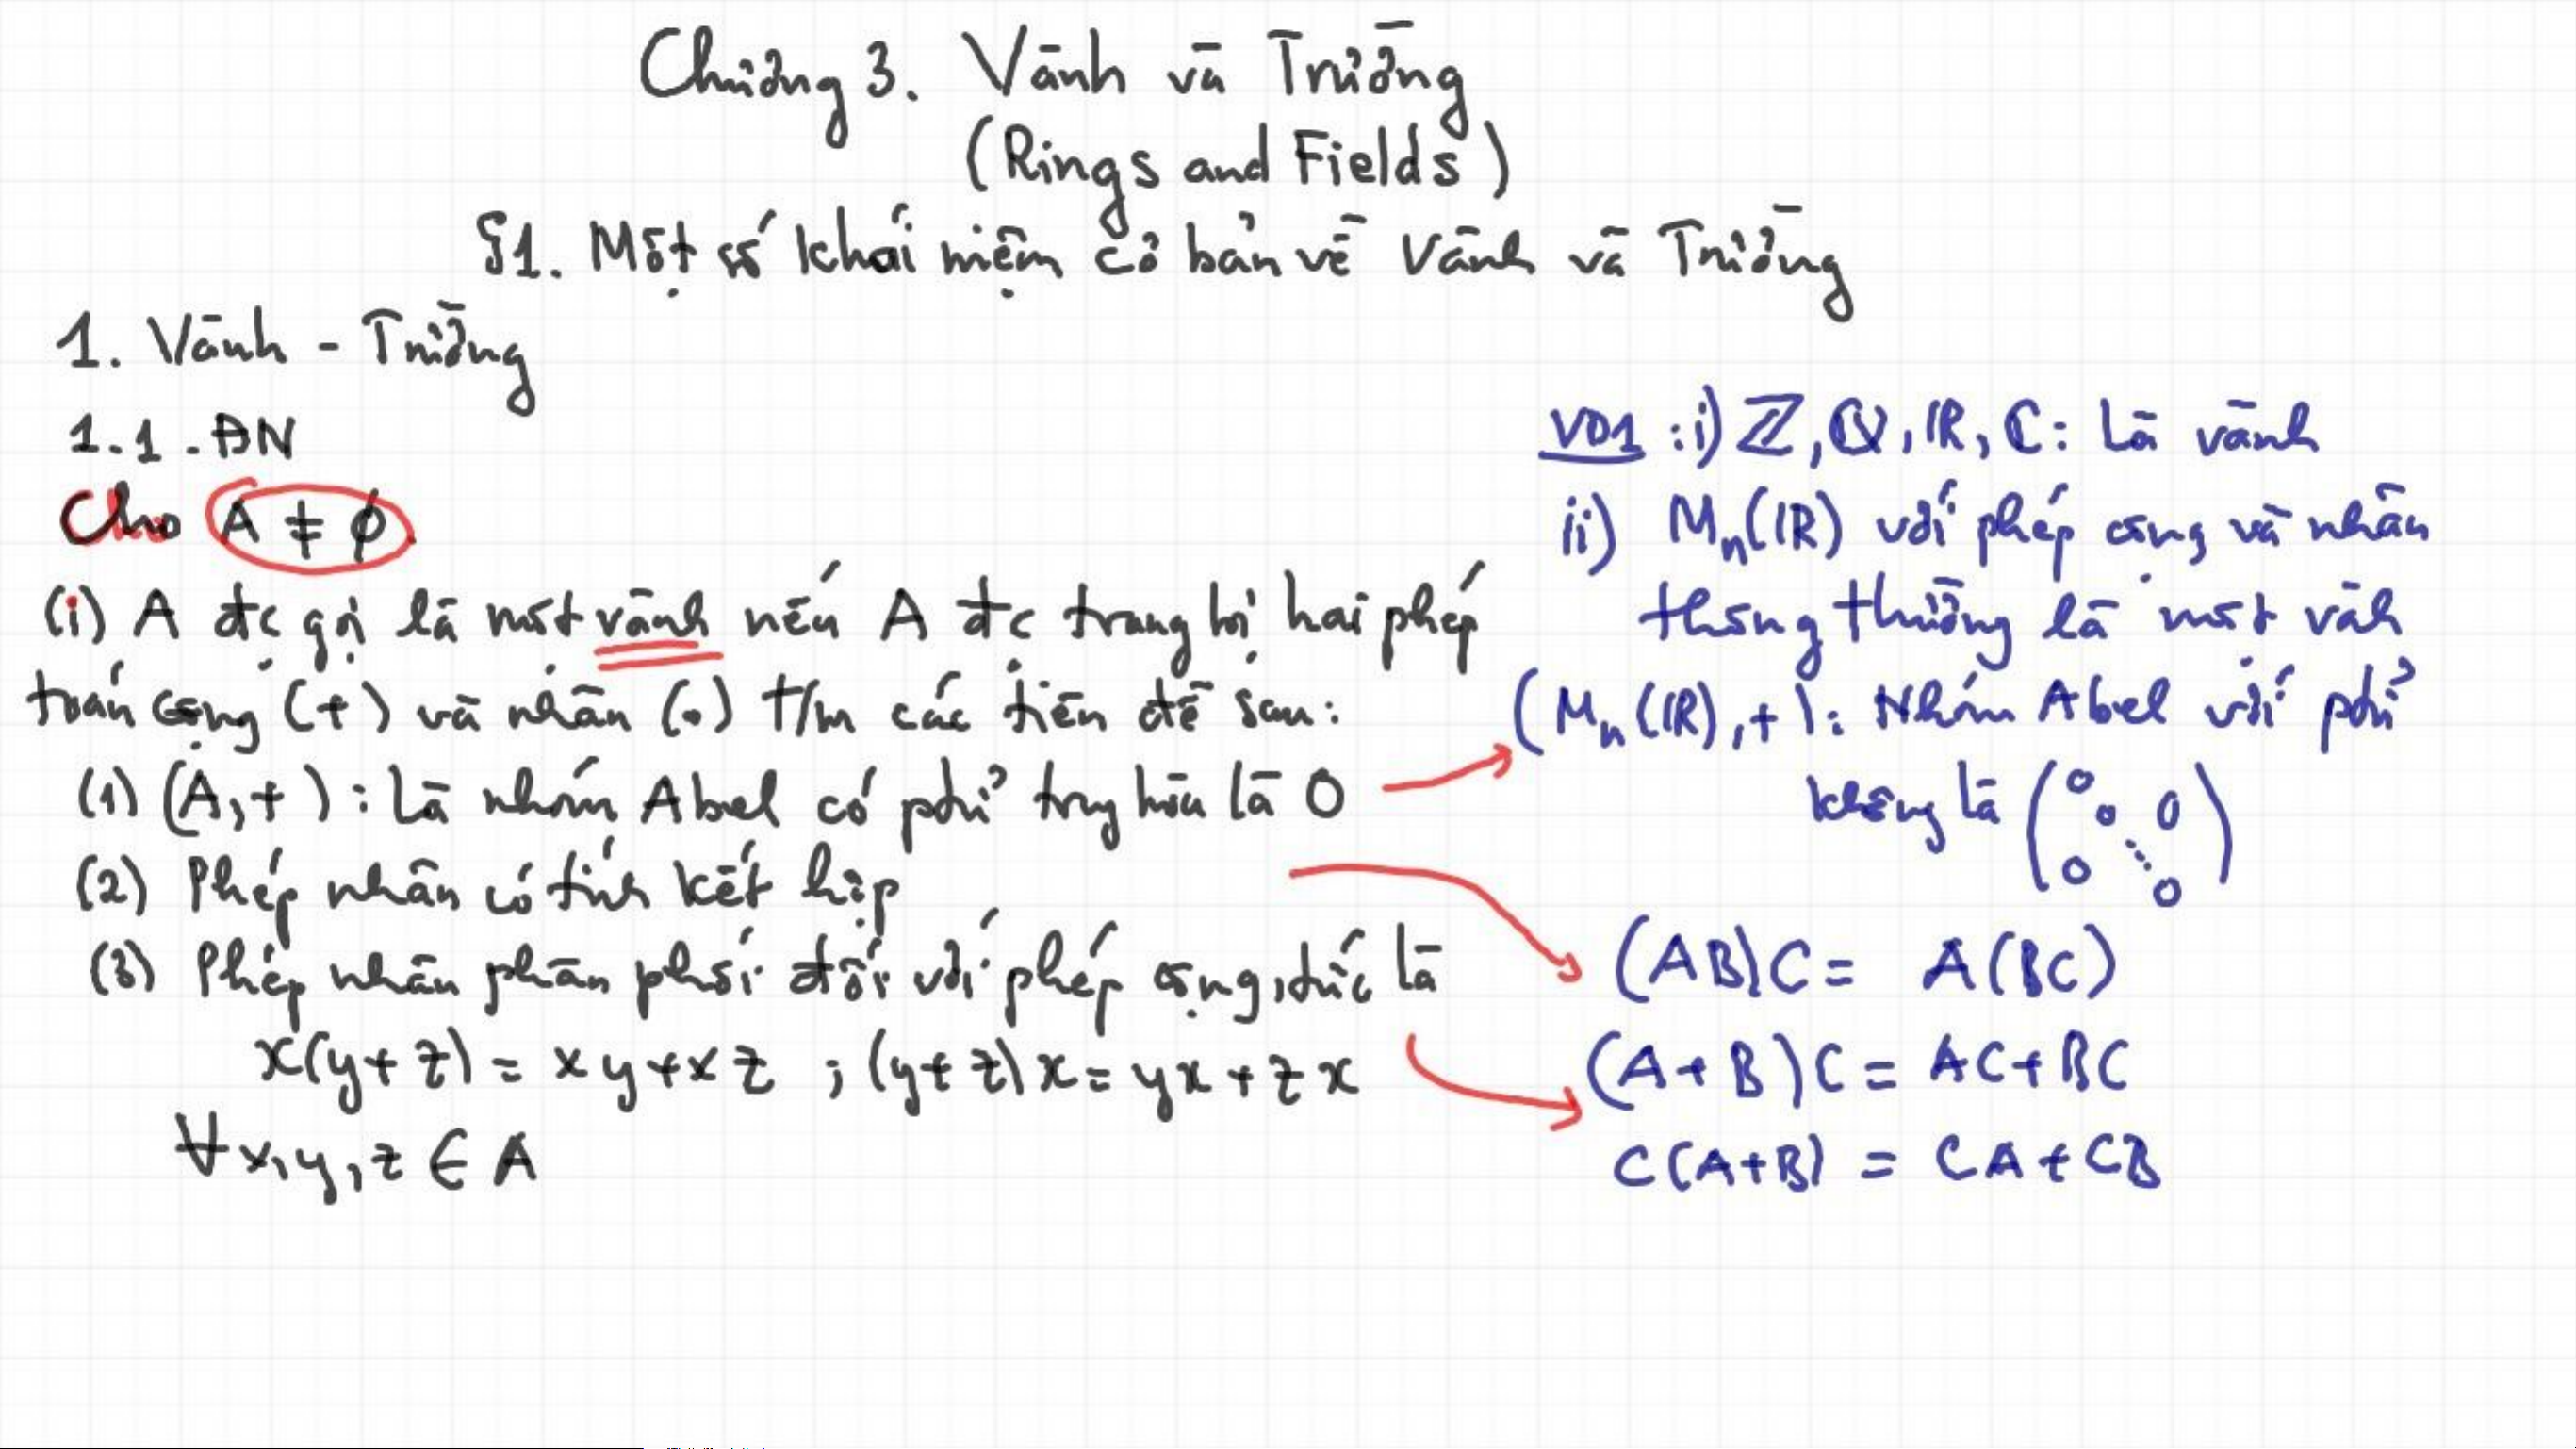 Chương 3. Vành và Trường
(Rings and Fields)
§1. Một số khái niệm cơ bản về Vành và Trường
1. Vành - Trường
1.1. ĐN
Cho A ≠ ∅.
(i) A đc gọi là một vành nếu A đc trang bị hai phép
toán cộng (+) và nhân (.) t/m các tiên đề sau:
(1) (A,+): Là nhóm Abel có ptử trung hòa là 0
(2) Phép nhân có tính kết hợp
(3) Phép nhân phân phối đối với phép cộng, tức là
x(y+z) = xy+xz ; (y+z)x = yx+zx
∀x,y,z ∈ A
VD1: i) ℤ, ℚ, ℝ, ℂ: Là vành
ii) Mn(ℝ) với phép cộng và nhân
thông thường là một vành
(Mn(ℝ),+): Nhóm Abel với ptử
không là (0 0 0 ⋱ 0 0)
(AB)C = A(BC)
(A+B)C = AC+BC
C(A+B) = CA+CB